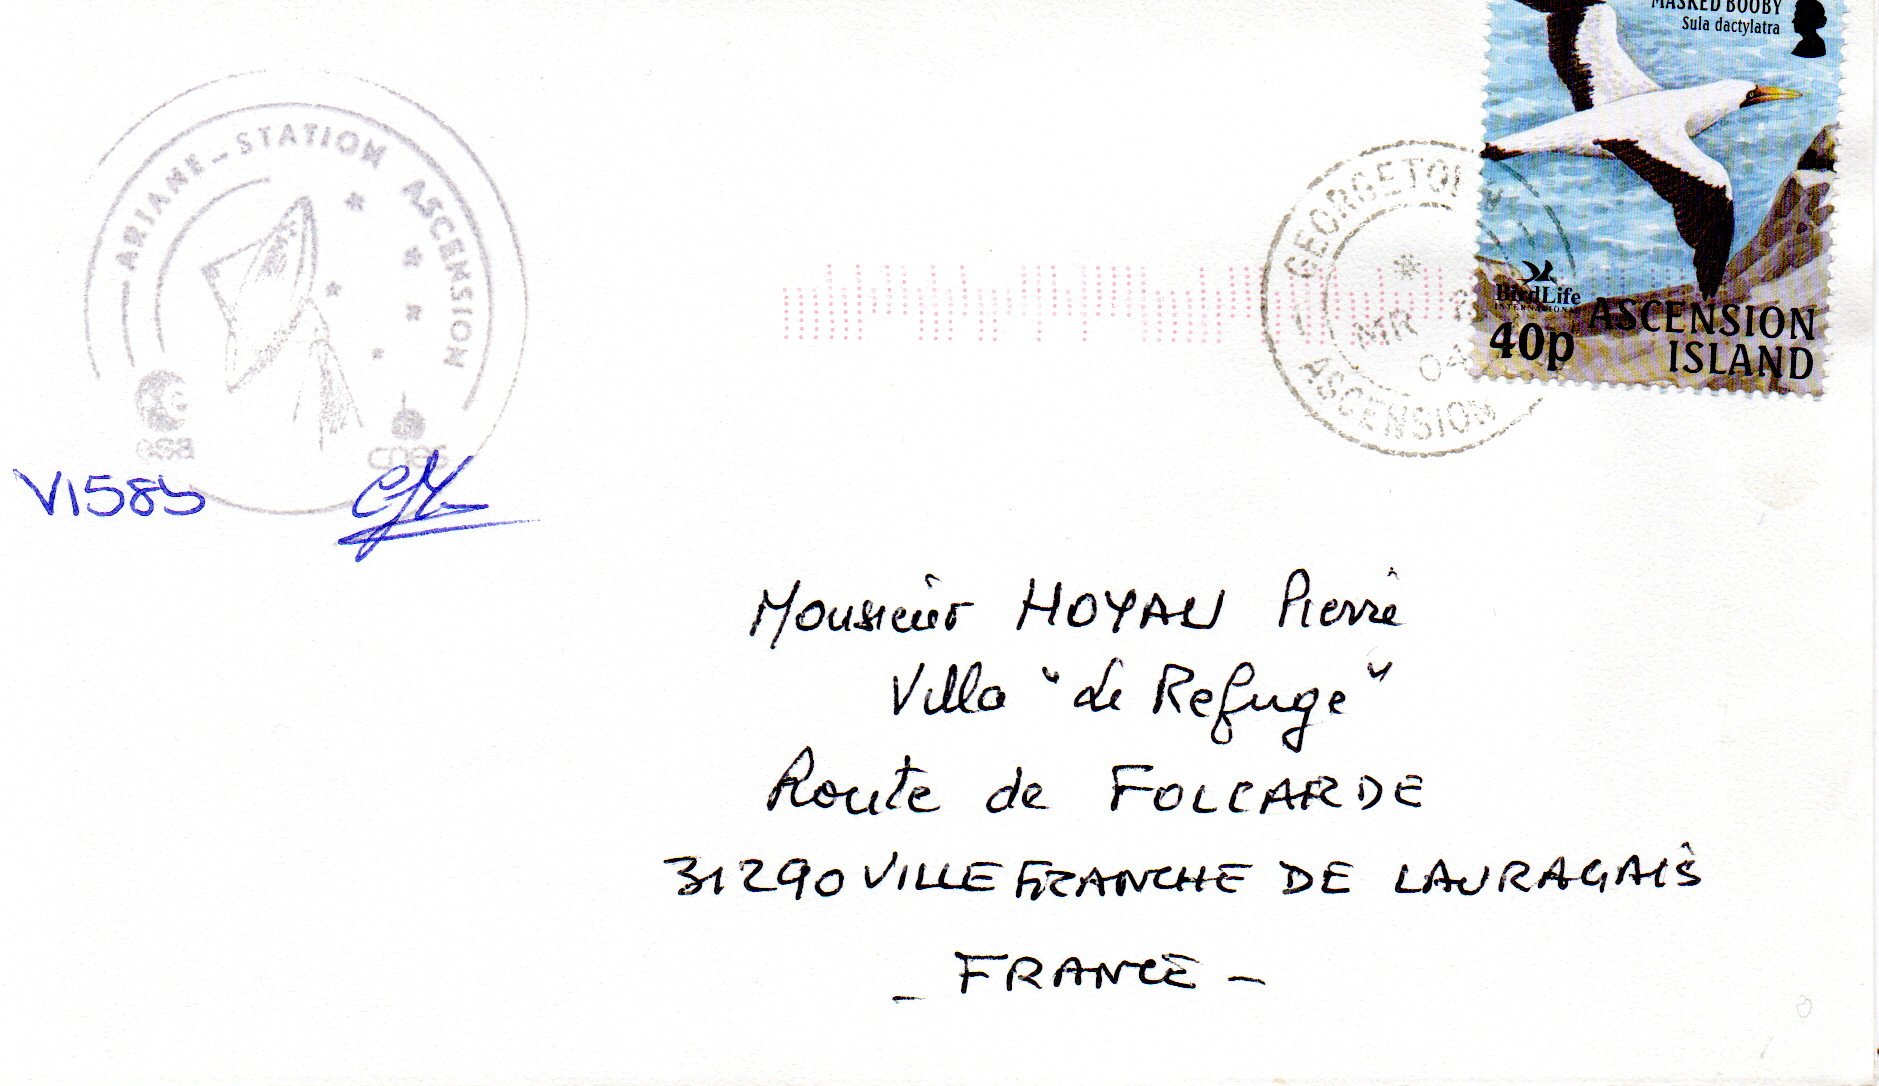 MASKED BOOBY
Sula dactylatra
BirdLife
INTERNATIONAL
40p
ASCENSION
ISLAND
GEORGETOWN
MR
04
ASCENSION
ARIANE-STATION ASCENSION
esa
cnes
V158
Monsieur HOYAU Pierre
Villa "Le Refuge"
Route de FOLCARDE
31290 VILLEFRANCHE DE LAURAGAIS
_ FRANCE _